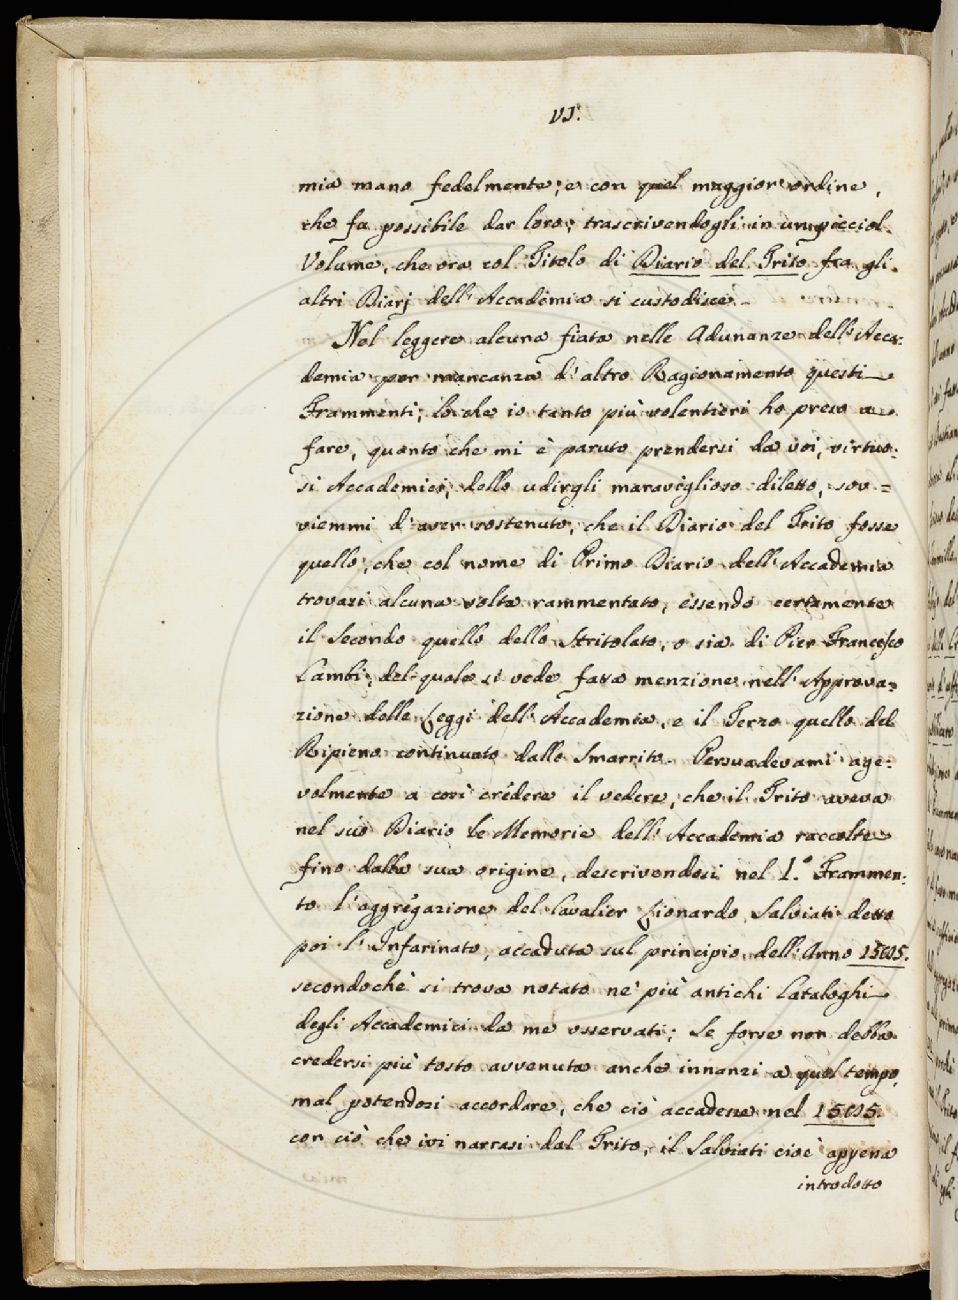 VI.
mia mano fedelmente; e con quel maggior ordine,
che fu possibile dar loro; trascrivendogli in un picciol
Volume, che ora col Titolo di Diario del Trito fra gli
altri Diarj dell'Accademia si custodisce.
Nel leggere alcuna fiata nelle Adunanze dell'Acca-
demia per mancanza d'altro Ragionamento questi
Frammenti; lo che io tanto più volentieri ho preso a
fare, quanto che mi è paruto prendersi da voi, virtuo-
si Accademici, dello udirgli maraviglioso diletto, sov=
viemmi d'aver sostenuto, che il Diario del Trito fosse
quello, che col nome di Primo Diario dell'Accademia
trovasi alcuna volta rammentato, essendo certamente
il Secondo quello dello Stritolato, o sia di Pier Francesco
Cambi, del quale si vede fatta menzione nell'Approva-
zione delle Leggi dell'Accademia, e il Terzo quello del
Ripieno continuato dallo Smarrito. Persuadevami age-
volmente a così crédere il vedere, che il Trito aveva
nel suo Diario le Memorie dell'Accademia raccolte
fino dalla sua origine, descrivendosi nel 1.° Frammen-
to l'aggregazione del Cavalier Lionardo Salviati detto
poi l'Infarinato, accaduta sul principio dell'Anno 1585.
secondochè si trova notato ne' più antichi Cataloghi
degli Accademici da me osservati; Se forse non debba
credersi più tosto avvenuta anche innanzi a quel tempo,
mal potendosi accordare, che ciò accadesse nel 1585.
con ciò che ivi narrasi dal Trito, il Salviati cioè appena
introdotto